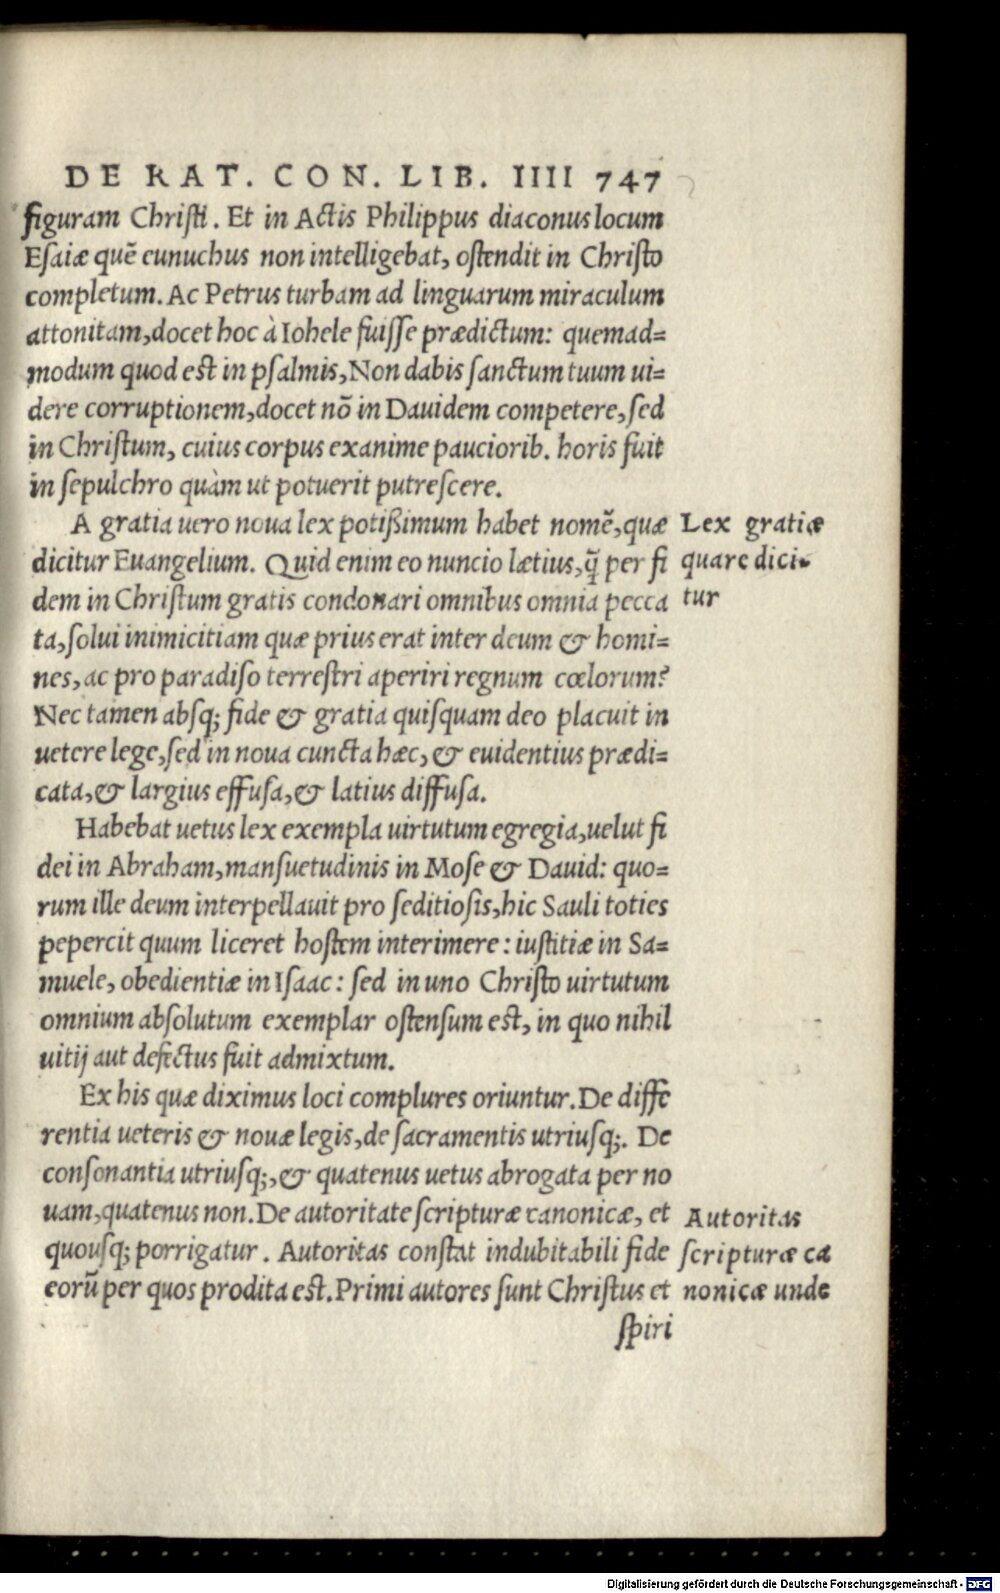 DE RAT. CON. LIB. IIII 747
figuram Christi. Et in Actis Philippus diaconus locum
Esaiæ quē eunuchus non intelligebat, ostendit in Christo
completum. Ac Petrus turbam ad linguarum miraculum
attonitam, docet hoc à Iohele fuisse prædictum: quemad=
modum quod est in psalmis, Non dabis sanctum tuum ui=
dere corruptionem, docet nō in Dauidem competere, sed
in Christum, cuius corpus exanime pauciorib. horis fuit
in sepulchro quàm ut potuerit putrescere.
A gratia uero noua lex potißimum habet nomē, quæ
dicitur Euangelium. Quid enim eo nuncio lætius, q̃ per fi
dem in Christum gratis condonari omnibus omnia pecca
ta, solui inimicitiam quæ prius erat inter deum & homi=
nes, ac pro paradiso terrestri aperiri regnum cœlorum?
Nec tamen absq; fide & gratia quisquam deo placuit in
uetere lege, sed in noua cuncta hæc, & euidentius prædi=
cata, & largius effusa, & latius diffusa.
Habebat uetus lex exempla uirtutum egregia, uelut fi
dei in Abraham, mansuetudinis in Mose & Dauid: quo=
rum ille deum interpellauit pro seditiosis, hic Sauli toties
pepercit quum liceret hostem interimere: iustitiæ in Sa=
muele, obedientiæ in Isaac: sed in uno Christo uirtutum
omnium absolutum exemplar ostensum est, in quo nihil
uitij aut defectus fuit admixtum.
Ex his quæ diximus loci complures oriuntur. De diffe
rentia ueteris & nouæ legis, de sacramentis utriusq;. De
consonantia utriusq;, & quatenus uetus abrogata per no
uam, quatenus non. De autoritate scripturæ canonicæ, et
quousq; porrigatur. Autoritas constat indubitabili fide
eorū per quos prodita est. Primi autores sunt Christus et
spiri
Lex gratiæ
quare dici=
tur
Autoritas
scripturæ ca
nonicæ unde
Digitalisierung gefördert durch die Deutsche Forschungsgemeinschaft - DFG